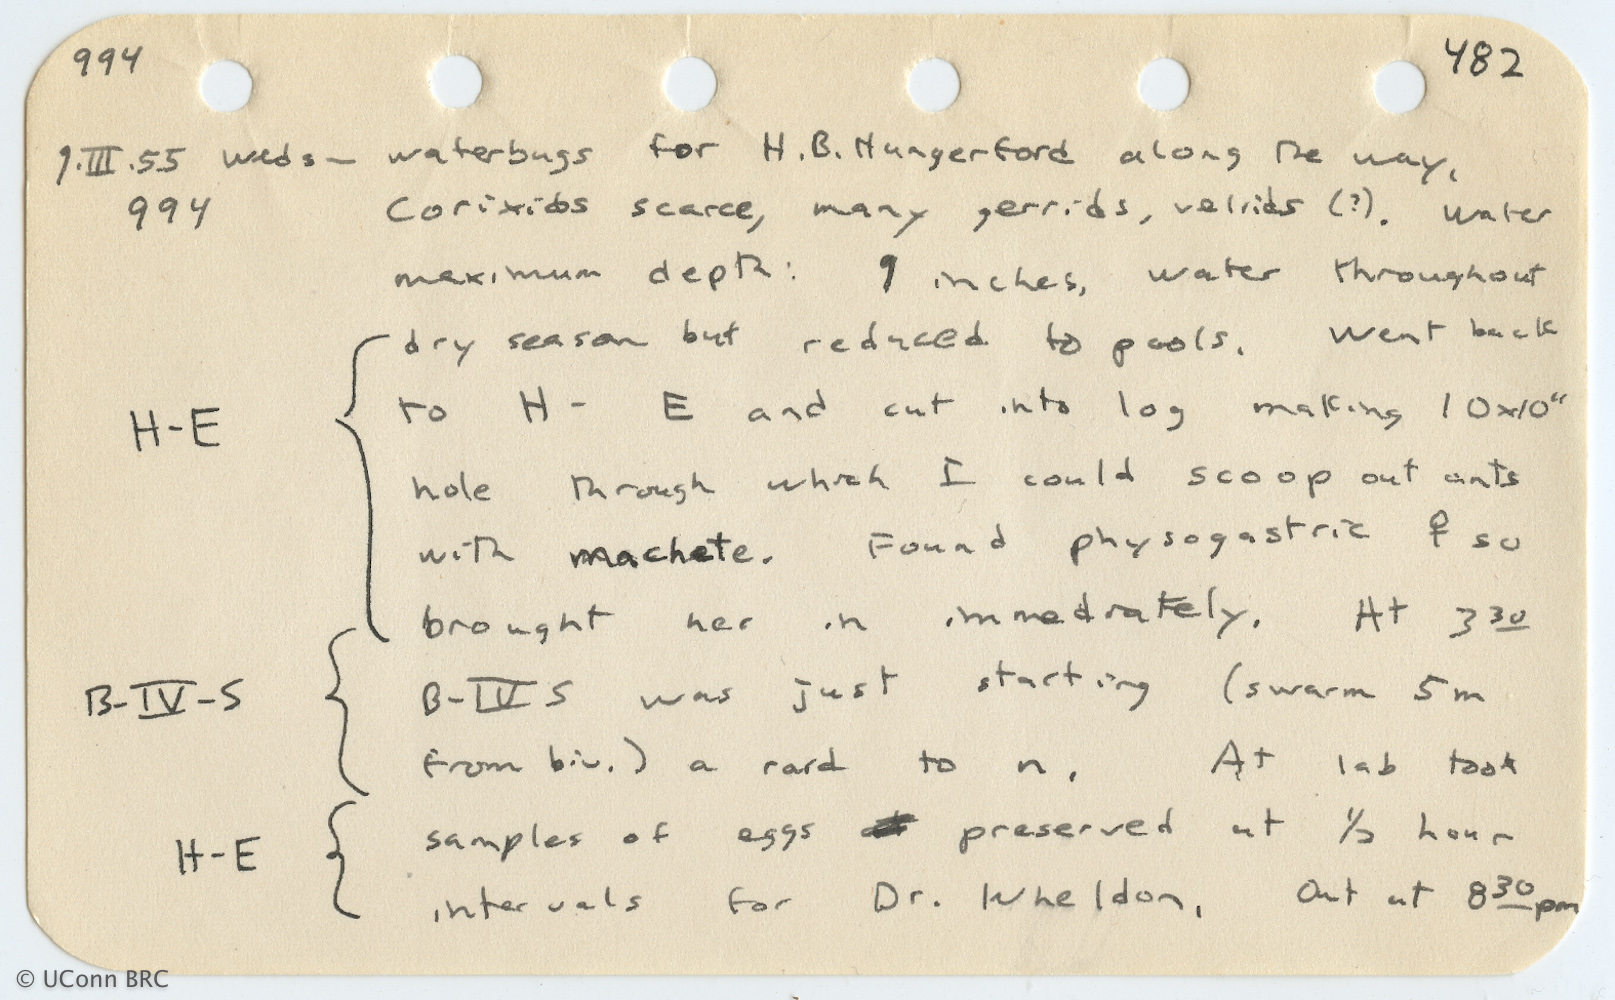 994 482
9.III.55 weds— waterbugs for H.B. Hungerford along the way.
994 Corixids scarce, many gerrids, veliids (?). Water
maximum depth: 9 inches, water throughout
dry season but reduced to pools. Went back
H-E to H- E and cut into log making 10x10"
hole through which I could scoop out ants
with machete. Found physogastric ♀ so
brought her in immediately. At 3 30
B-IV-S B-IV S was just starting (swarm 5m
from biv.) a raid to n. At lab took
H-E samples of eggs preserved at 1/2 hour
intervals for Dr. Wheldon. Out at 8 30 pm
© UConn BRC